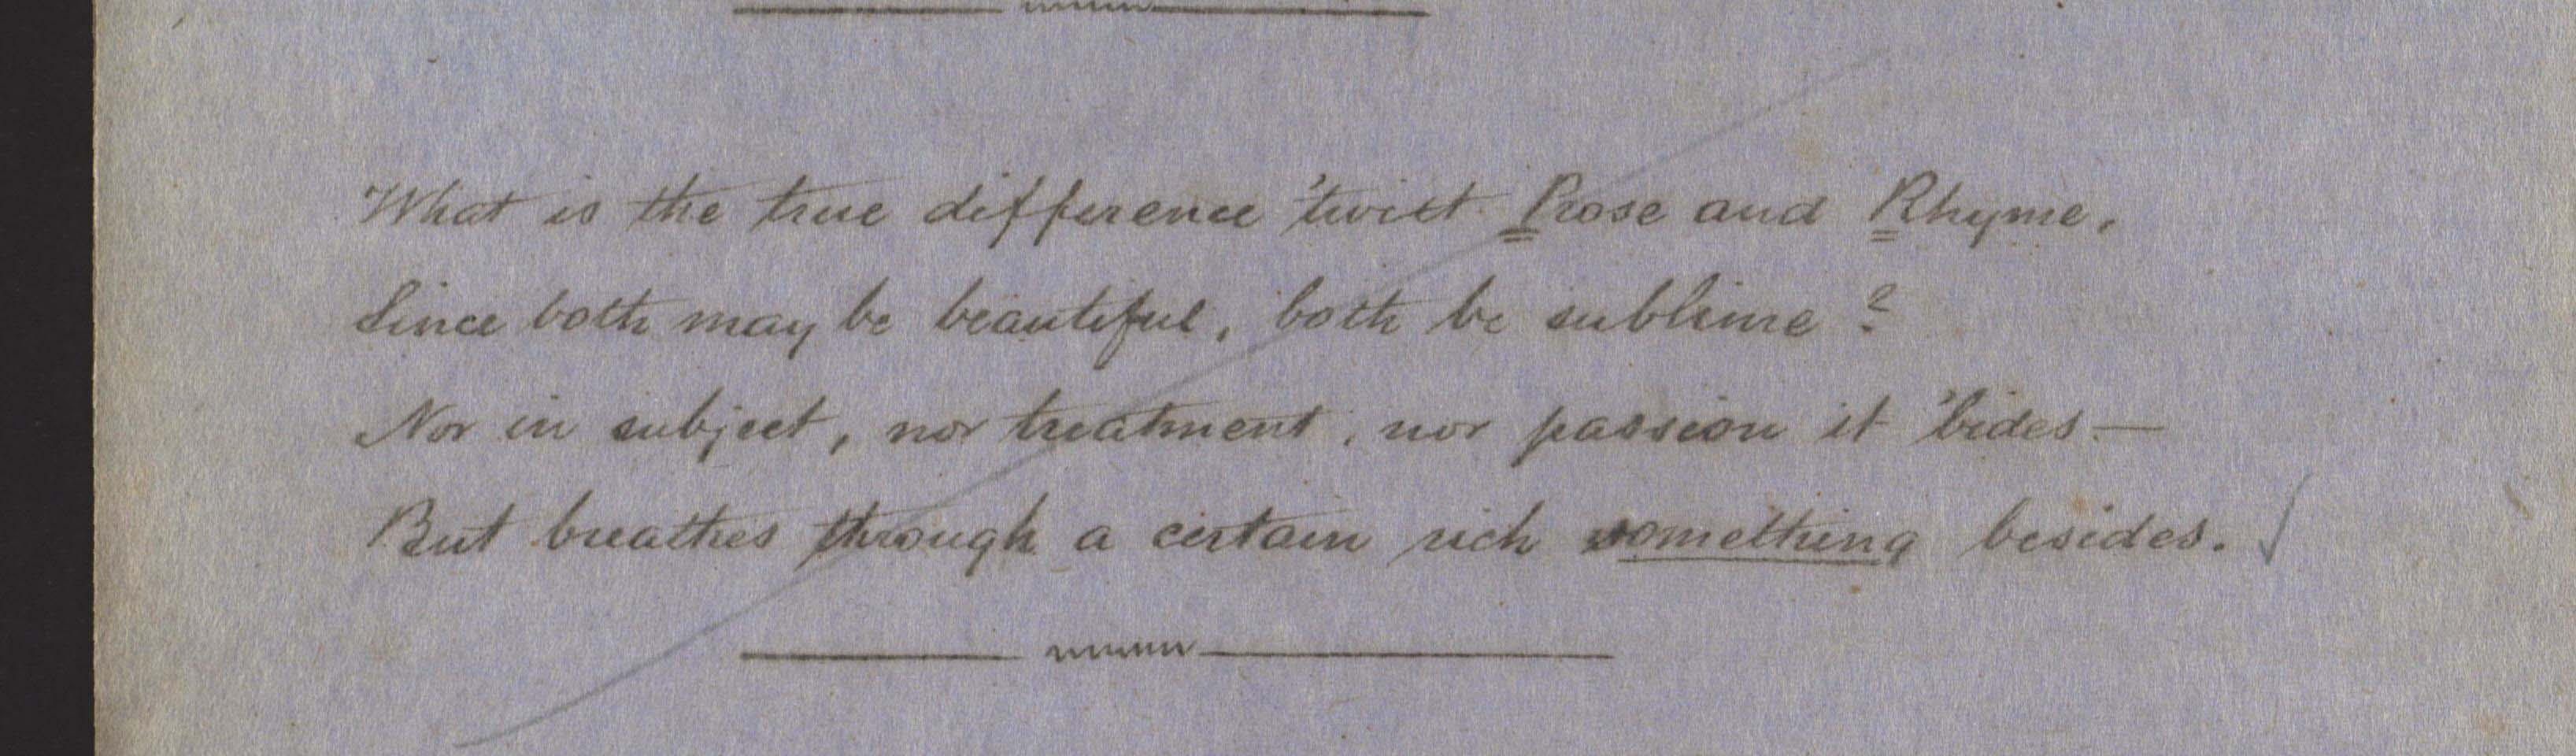 What is the true difference 'twixt Prose and Rhyme,
Since both may be beautiful, both be sublime?
Nor in subject, nor treatment, nor passion it 'bides—
But breathes through a certain rich something besides.